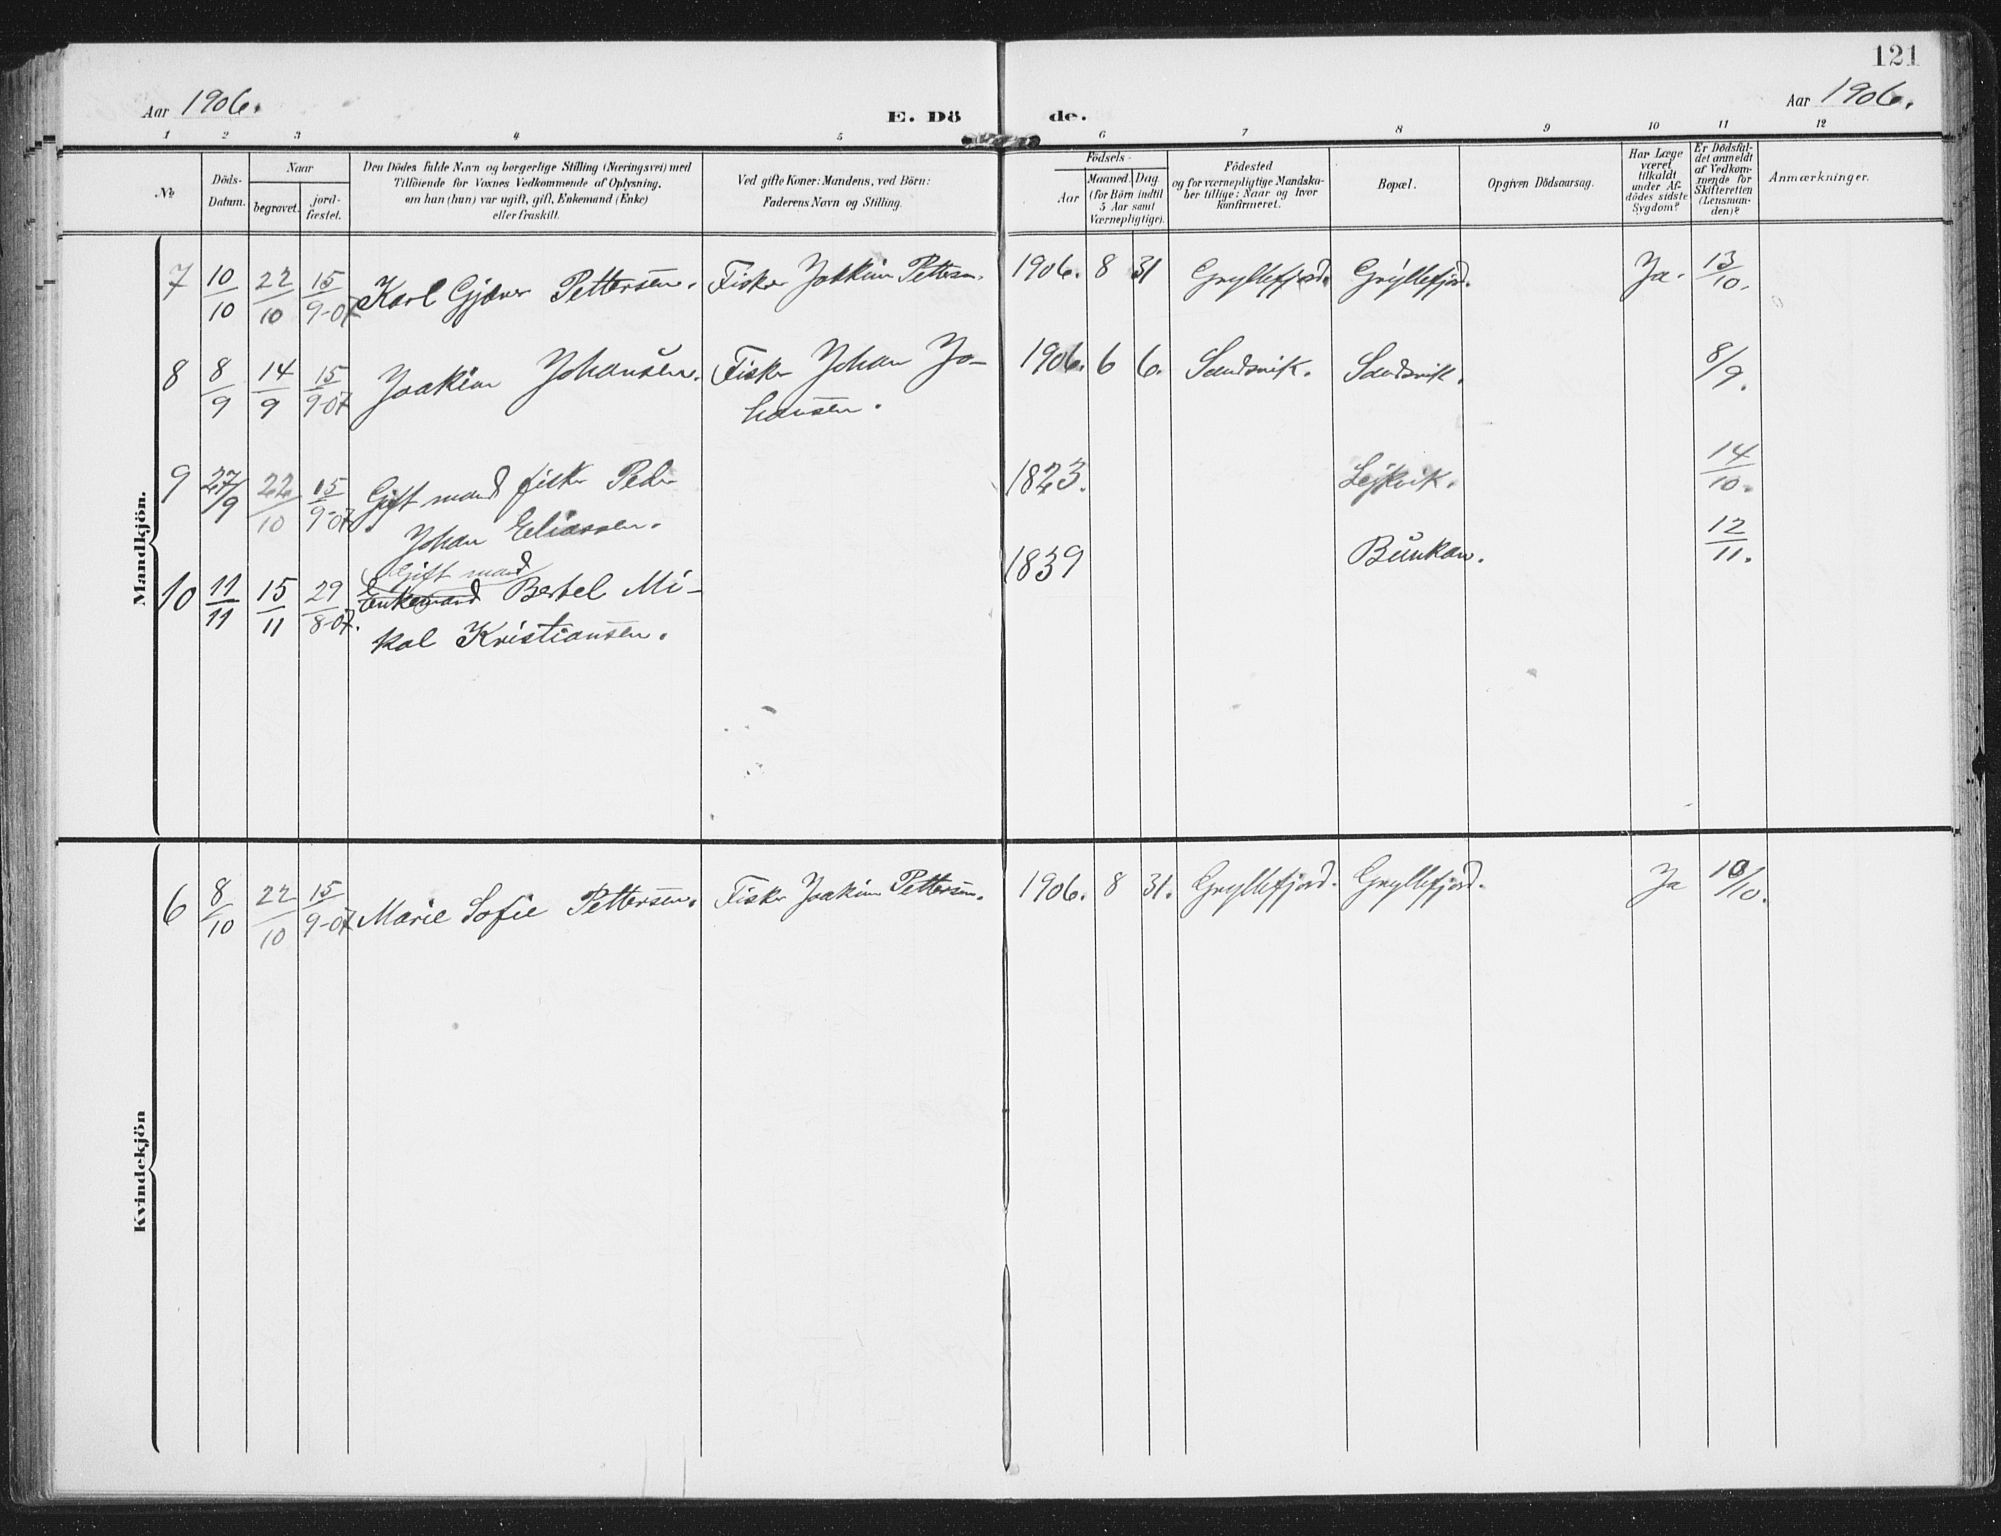 121
Aar 1906.
E. Dö
de.
Aar 1906.
1 2 3 4 5 6 7 8 9 10 11 12
№
Döds-
Datum.
Naar
begravet.
jord-
fæstet.
Den Dödes fulde Navn og borgerlige Stilling (Næringsvei) med
Tilföiende for Voxnes Vedkommende af Oplysning,
om han (hun) var ugift, gift, Enkemand (Enke)
eller fraskilt.
Ved gifte Koner: Mandens, ved Börn:
Faderens Navn og Stilling.
Födsels-
Aar
Maaned. Dag
(for Börn indtil
5 Aar samt
Værnepligtige).
Födested
og for værnepligtige Mandska-
ber tillige: Naar og hvor
konfirmeret.
Bopæl.
Opgiven Dödsaarsag.
Har Læge
været
tilkaldt
under Af-
dödes sidste
Sygdom?
Er Dödsfal-
det anmeldt
af Vedkom-
mende for
Skifteretten
(Lensman-
den)?
Anmærkninger.
Mandkjön.
7 10/10 22/10 15/9-07 Karl Gjæver Pettersen. Fisker Joakim Pettersen. 1906. 8 31 Gryllefjord. Gryllefjord. Ja. 13/10.
8 8/9 14/9 15/9-07 Joakim Johansen. Fisker Johan Jo- 1906. 6 6. Sandsvik. Sandsvik. 8/9.
hansen.
9 27/9 22/10 15/9-07 Gift mand fisker Peder 1823. 14/10.
Johan Eliassen.
Gift mand
10 11/11 15/11 29/8-07. Enkemand Bertel Mi- 1839 Bunkan. 12/11.
kal Kristiansen.
Kvindekjön
6 8/10 22/10 15/9-07 Marie Sofie Pettersen. Fisker Joakim Pettersen. 1906. 8 31. Gryllefjord. Gryllefjord. Ja 10/10.